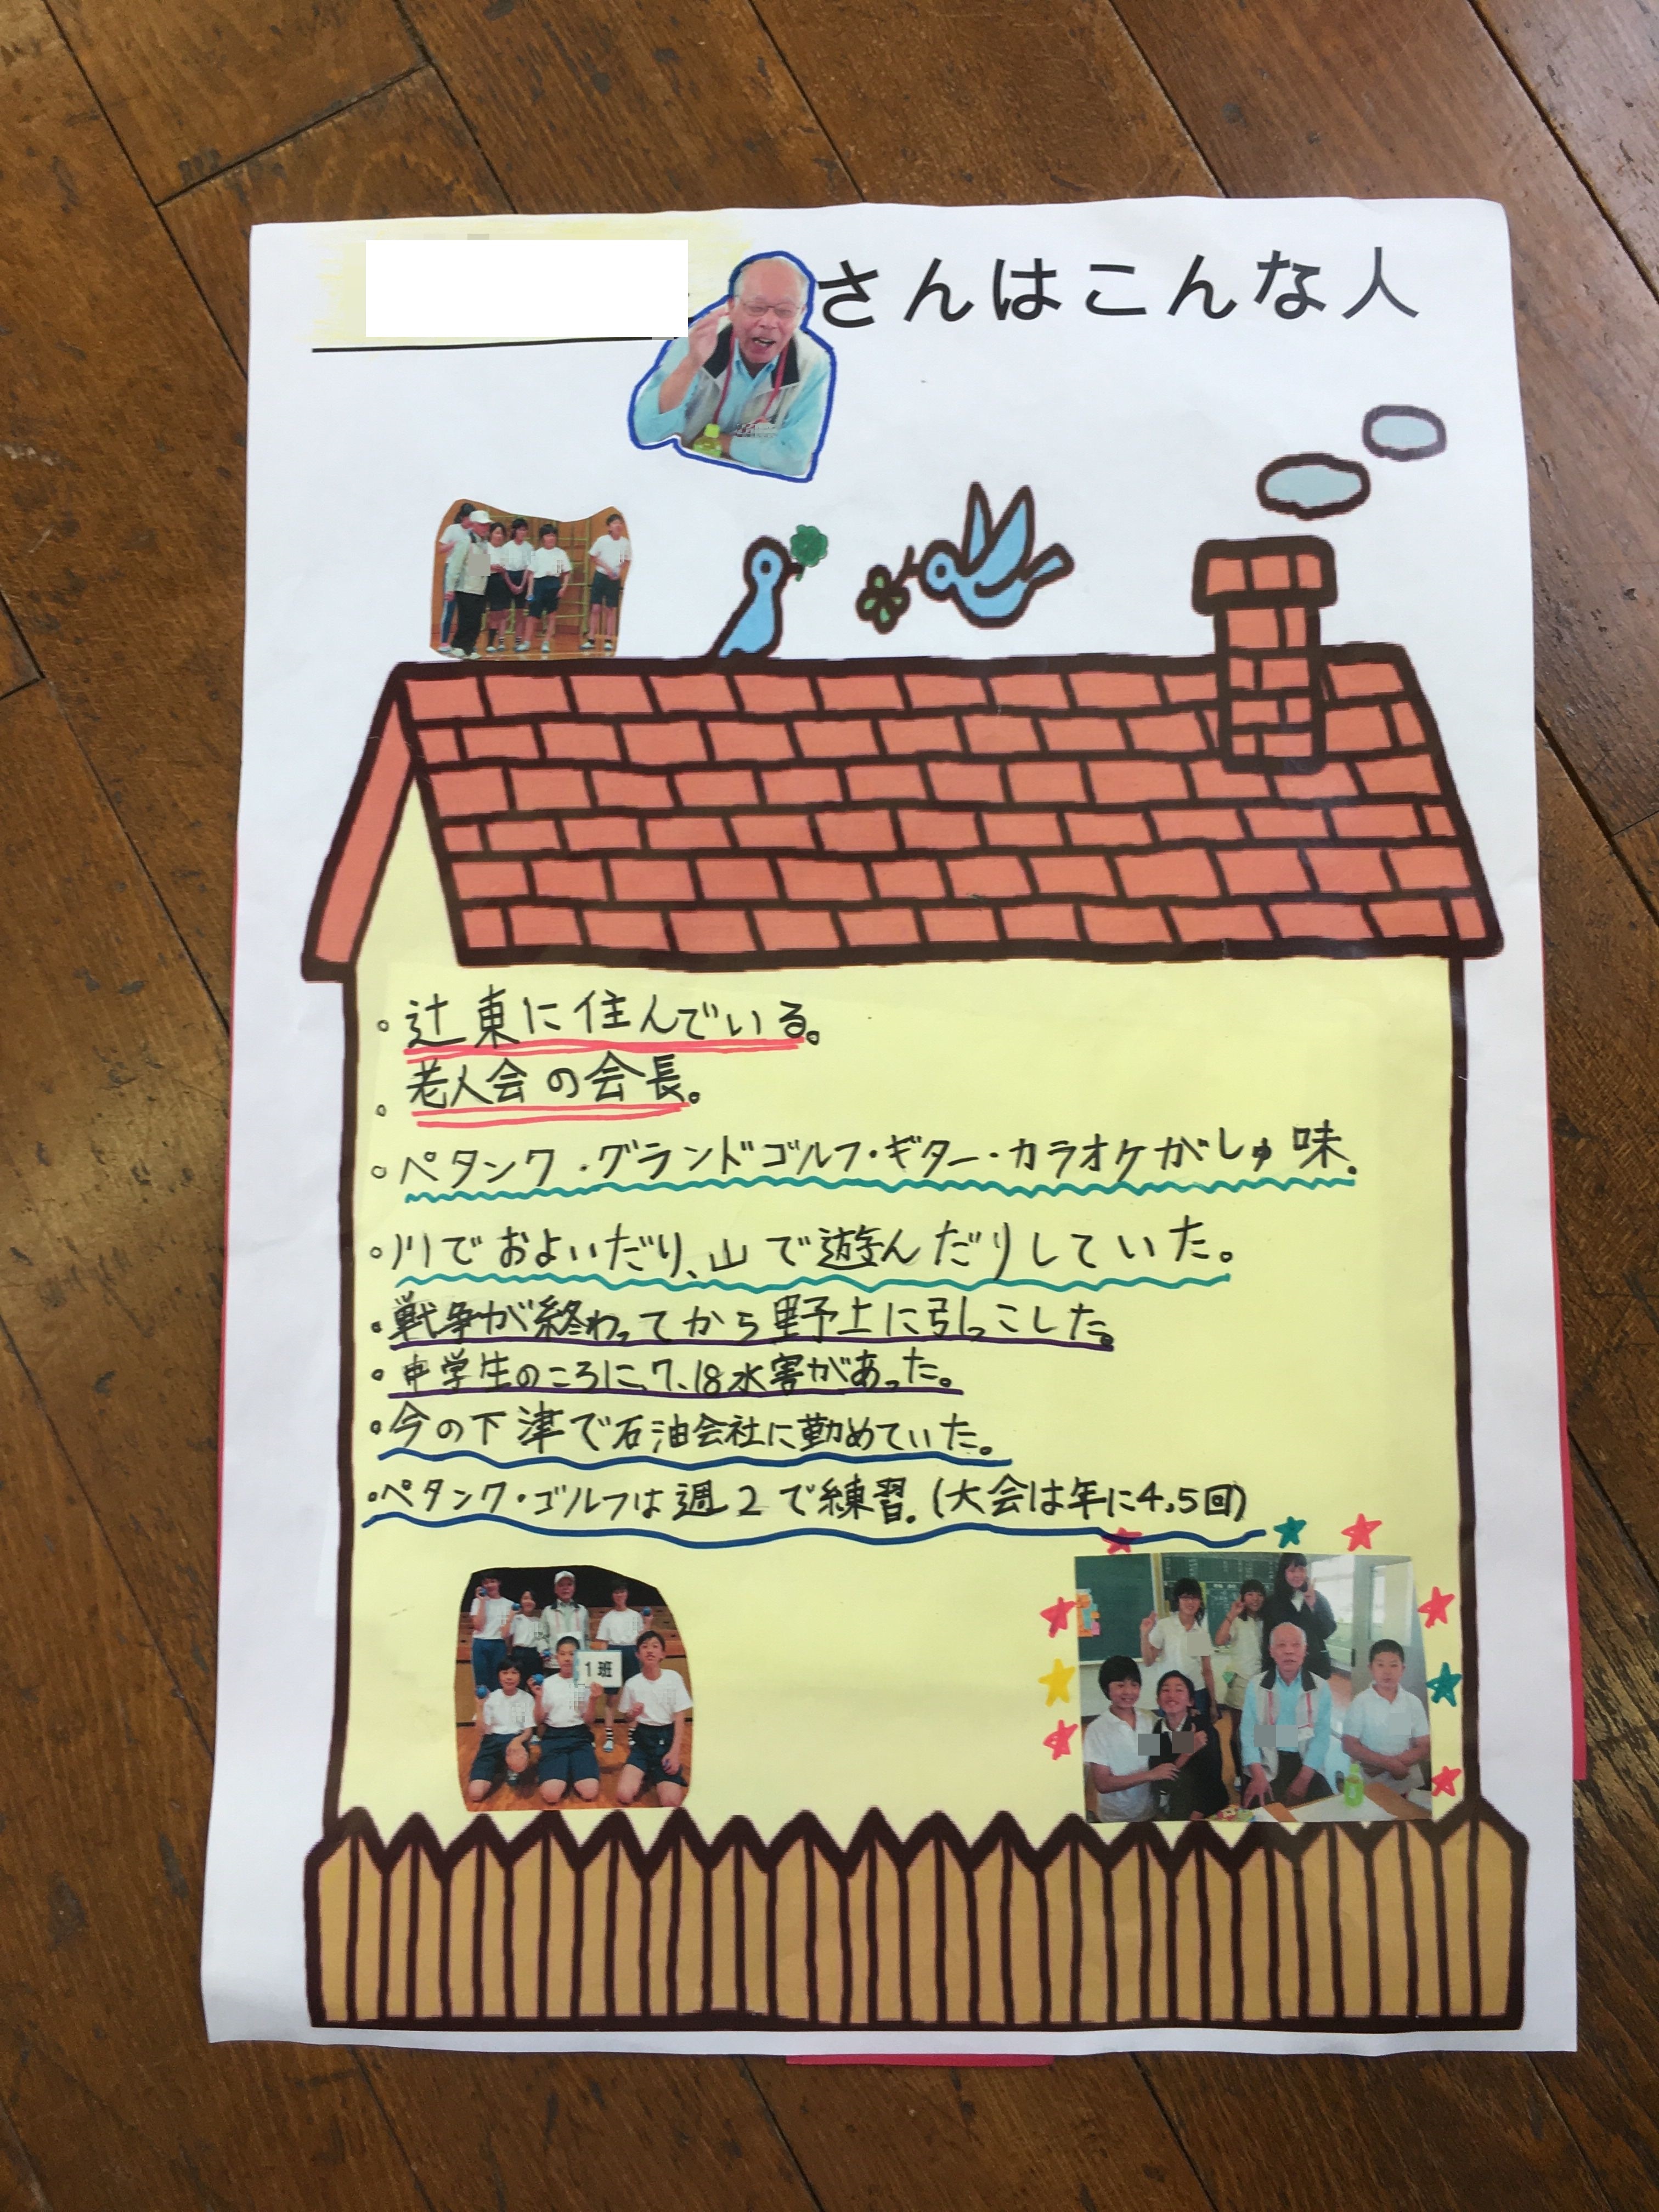 さんはこんな人
・辻東に住んでいる。
・老人会の会長。
・ペタンク・グランドゴルフ・ギター・カラオケがしゅ味。
・川でおよいだり、山で遊んだりしていた。
・戦争が終わってから野上に引っこした。
・中学生のころに、7、18水害があった。
・今の下津で石油会社に勤めていた。
・ペタンク・ゴルフは週2で練習。(大会は年に4、5回)
1班